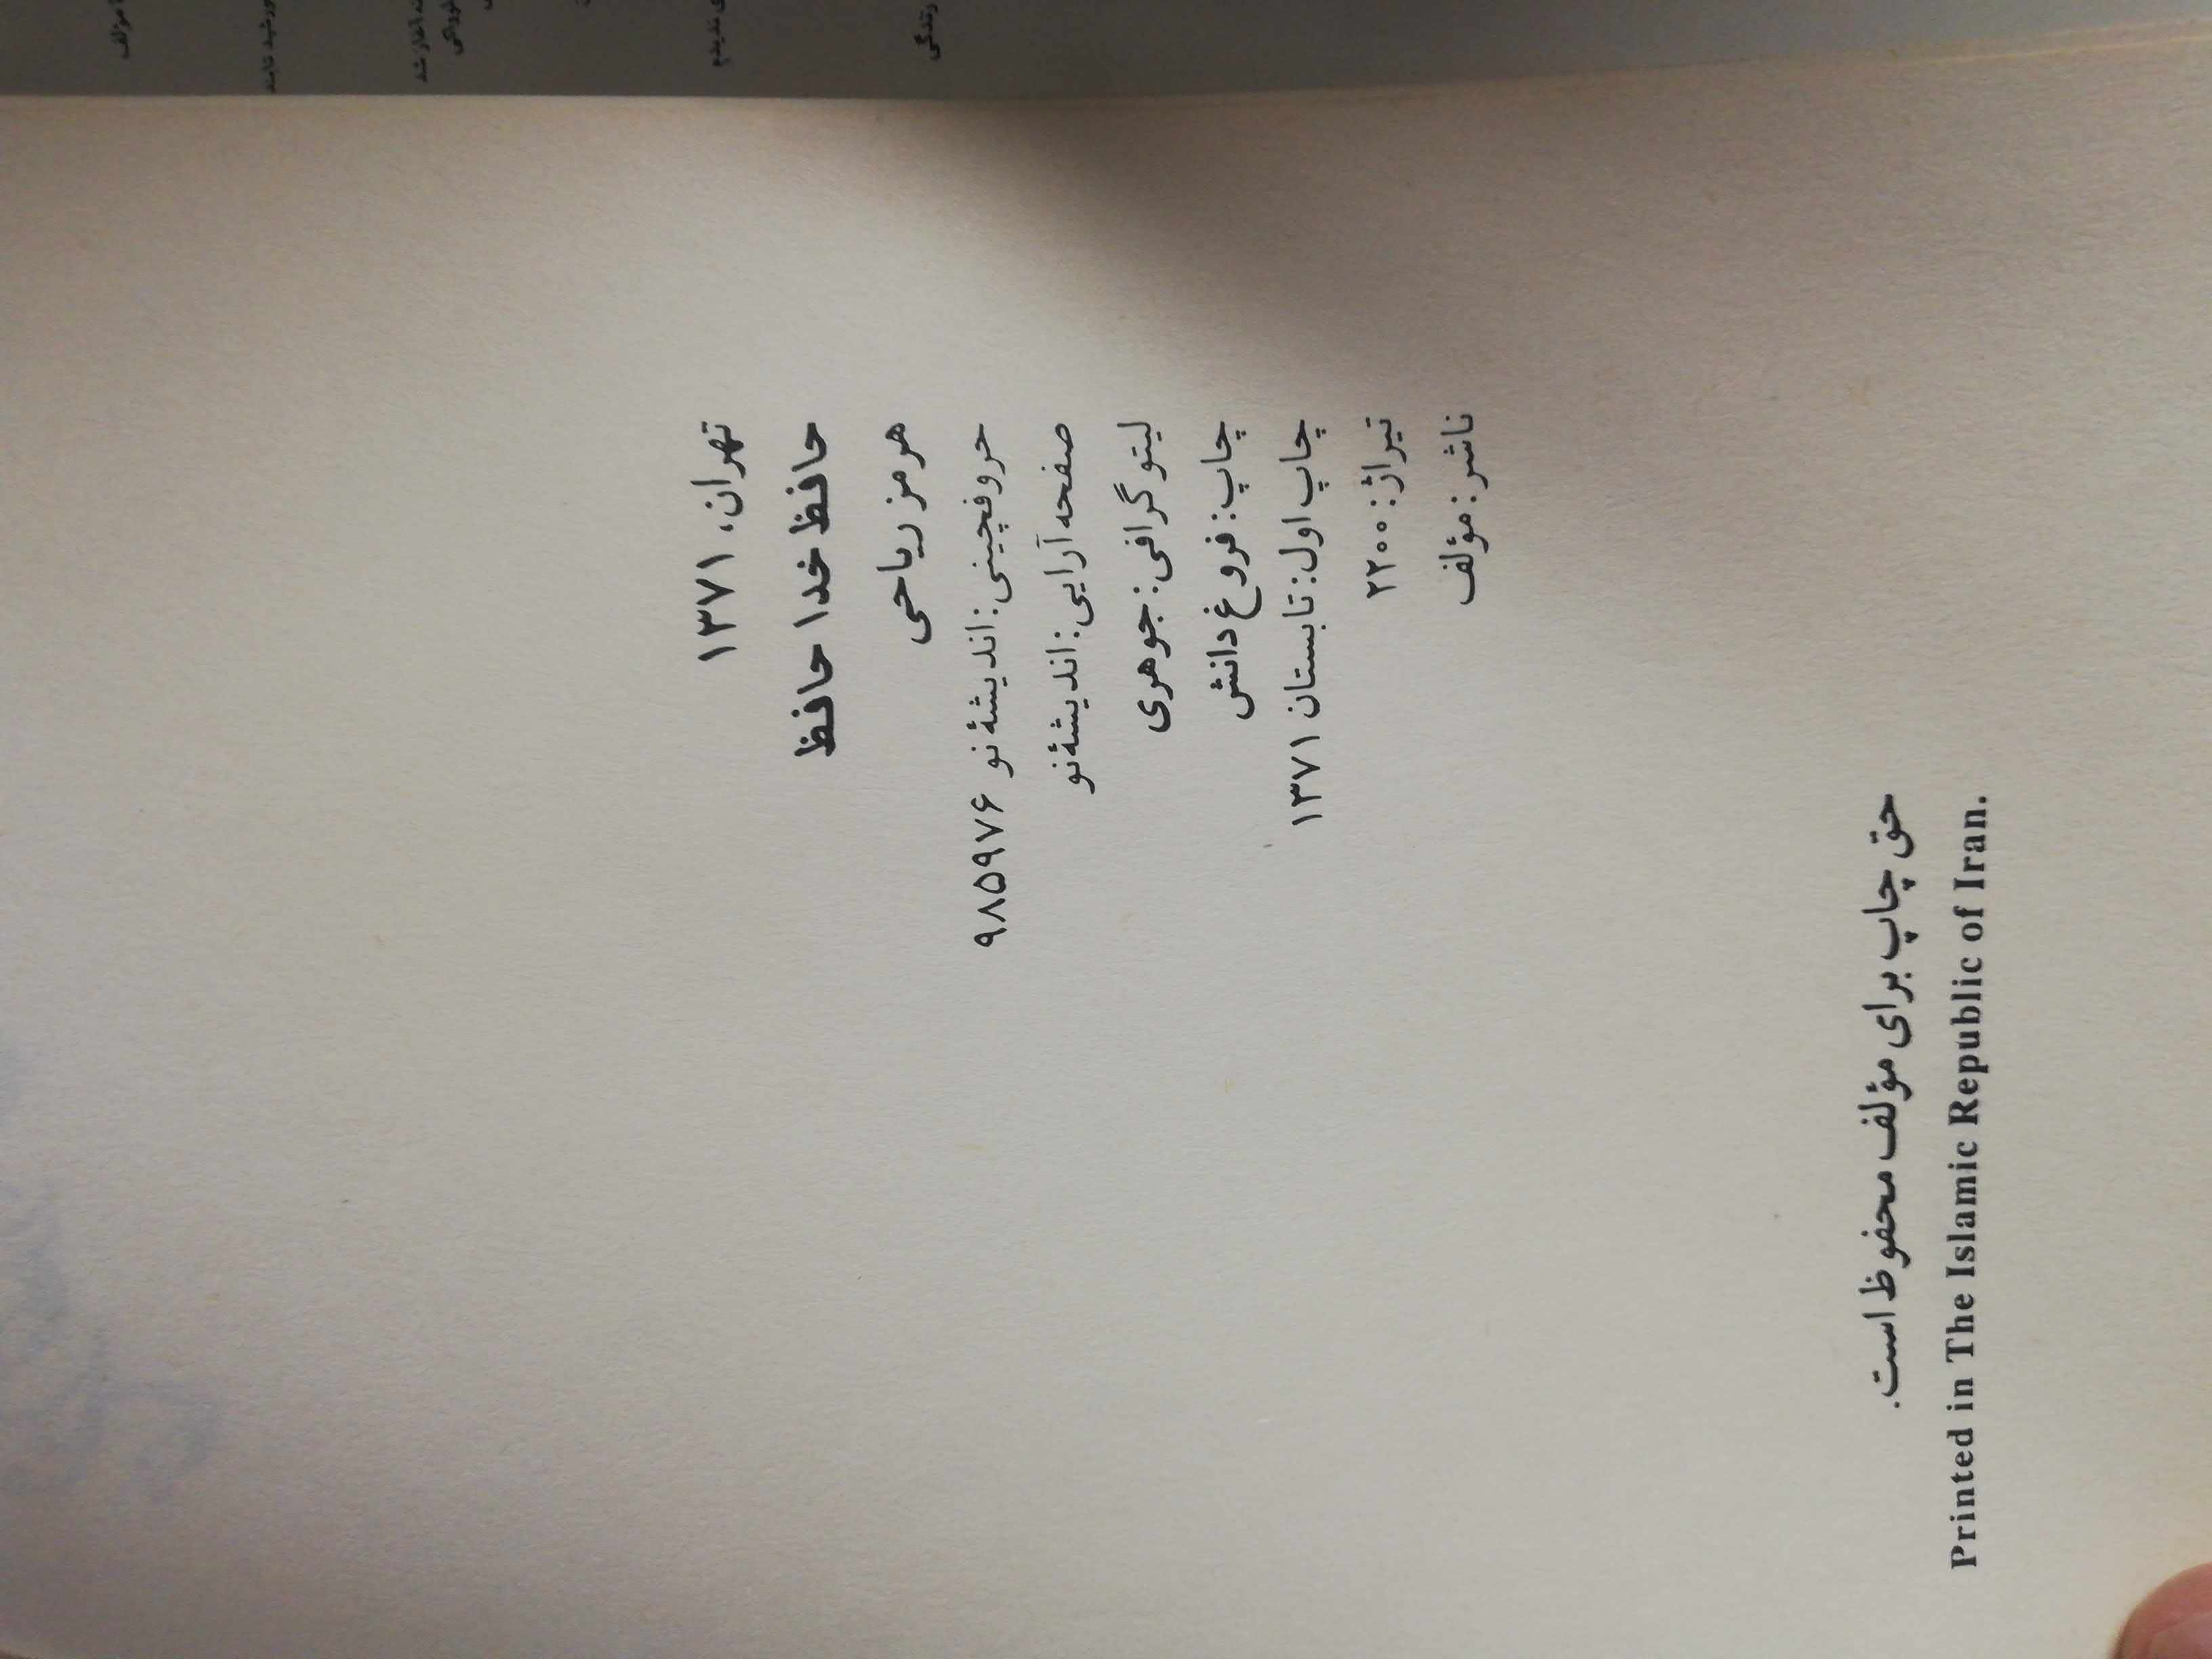 تهران، ۱۳۷۱
حافظ خدا حافظ
هرمز ریاحی
حروفچینی: اندیشهٔ نو ۹۸۵۹۷۶
صفحه آرایی: اندیشهٔ نو
لیتوگرافی: جوهری
چاپ: فروغ دانش
چاپ اول: تابستان ۱۳۷۱
تیراژ: ۲۲۰۰
ناشر: مؤلف
حق چاپ برای مؤلف محفوظ است.
Printed in The Islamic Republic of Iran.